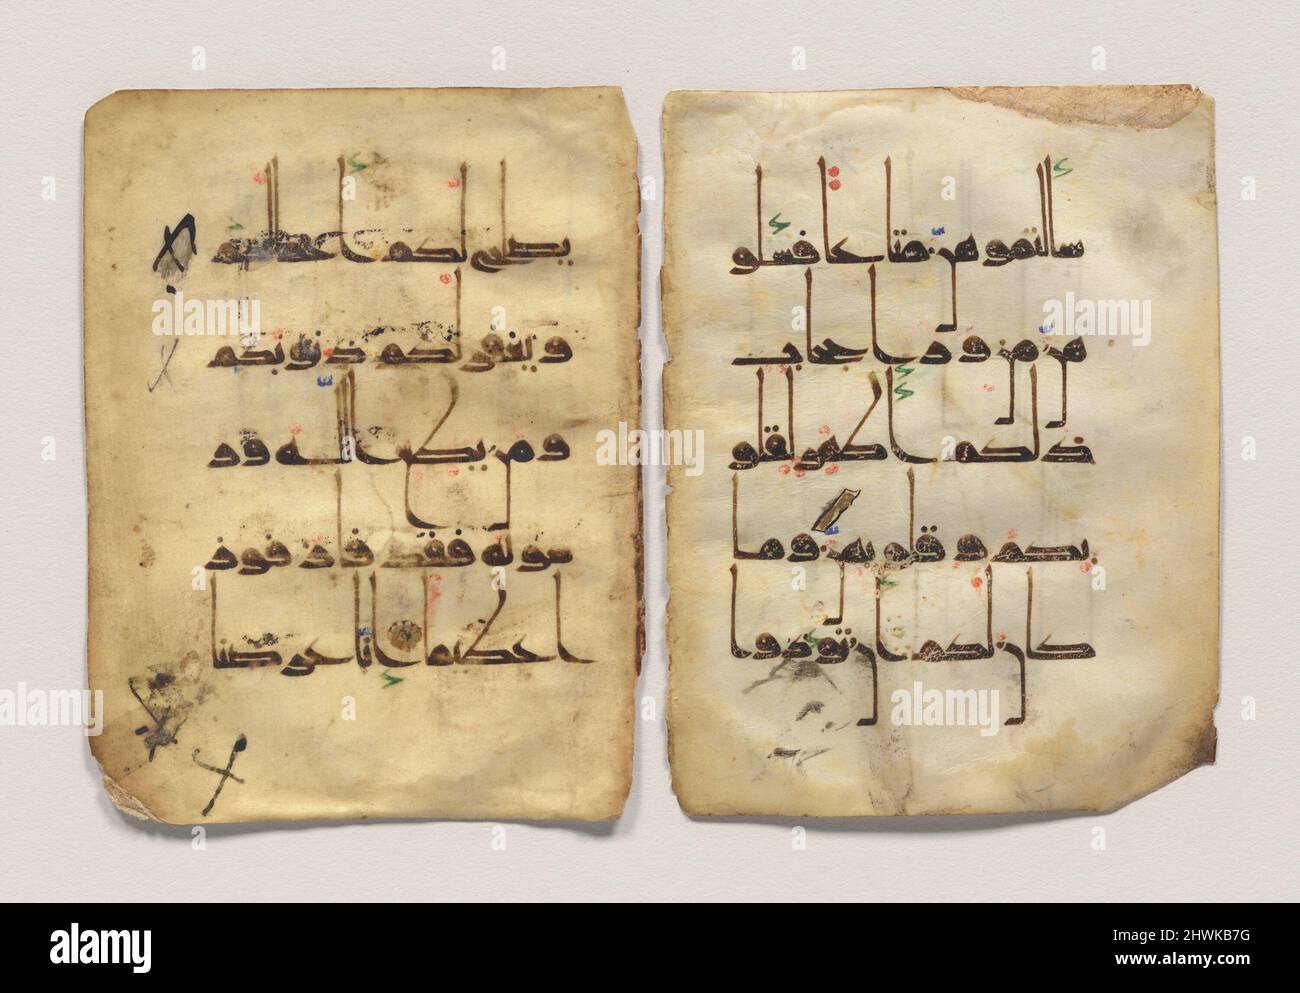 سالتموهن متعا فسلو
هن من ورا حجاب
ذلكم اطهر لقلو
بكم و قلوبهن و ما
كان لكم ان توذوا
يصلح لكم اعملكم
و يغفر لكم ذنوبكم
و من يطع الله و ر
سوله فقد فاز فوز
ا عظيما انا عرضنا
alamy
Image ID: 2HWKB7G
www.alamy.com